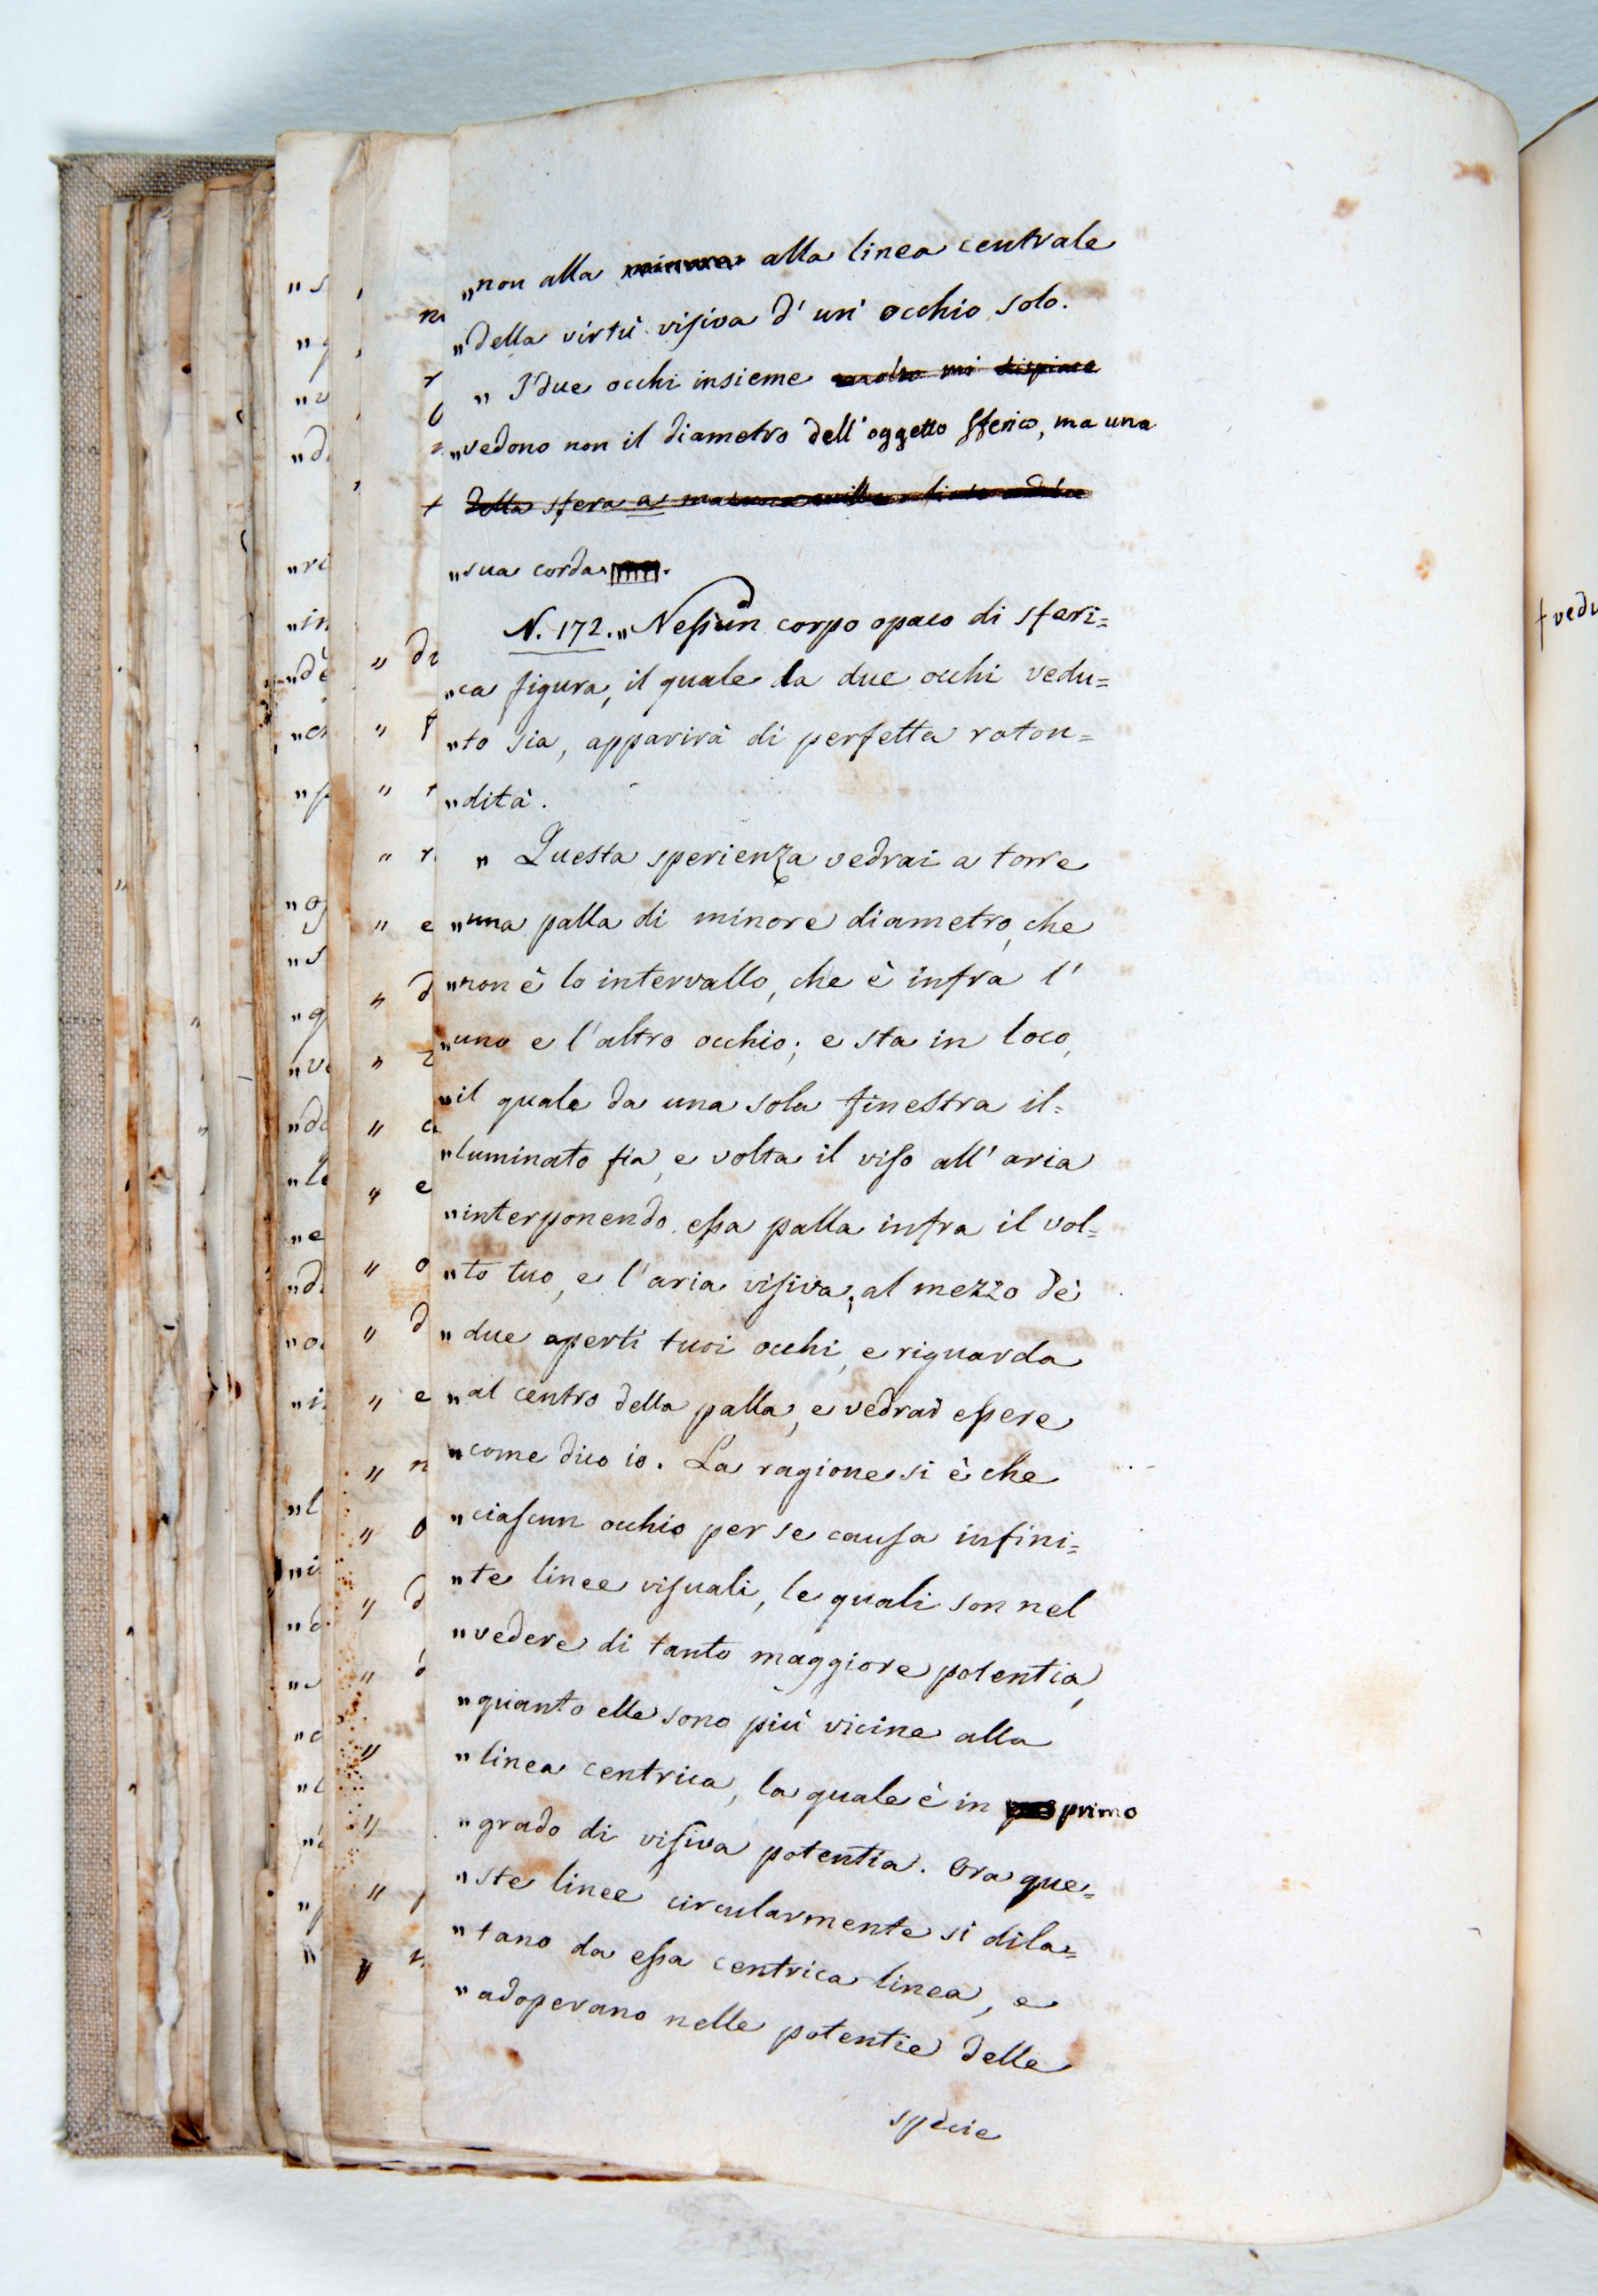 „non alla alla linea centrale
„della virtù visiva d'un' occhio solo.
„ I due occhi insieme molto mi dispiace
„vedono non il diametro dell'oggetto sferico, ma una
+ della sfera a
„sua corda.
N. 172. „Nessun corpo opaco di sferi=
„ca figura, il quale da due occhi vedu=
„to sia, apparirà di perfetta roton=
„dità.
„ Questa sperienza vedrai a torre
„una palla di minore diametro, che
„non è lo intervallo, che è infra l'
„uno e l'altro occhio; e sta in loco,
„il quale da una sola finestra il=
„luminato sia, e volta il viso all'aria
„interponendo essa palla infra il vol=
„to tuo, e l'aria visiva, al mezzo de'
„due aperti tuoi occhi, e riguarda
„al centro della palla, e vedrai essere
„come dico io. La ragione si è che
„ciascun occhio per se causa infini=
„te linee visuali, le quali son nel
„vedere di tanto maggiore potentia,
„quanto elle sono più vicine alla
„linea centrica, la quale è in primo
„grado di visiva potentia. Ora que=
„ste linee circularmente si dila=
„tano da essa centrica linea, e
„adoperano nelle potentie delle
specie